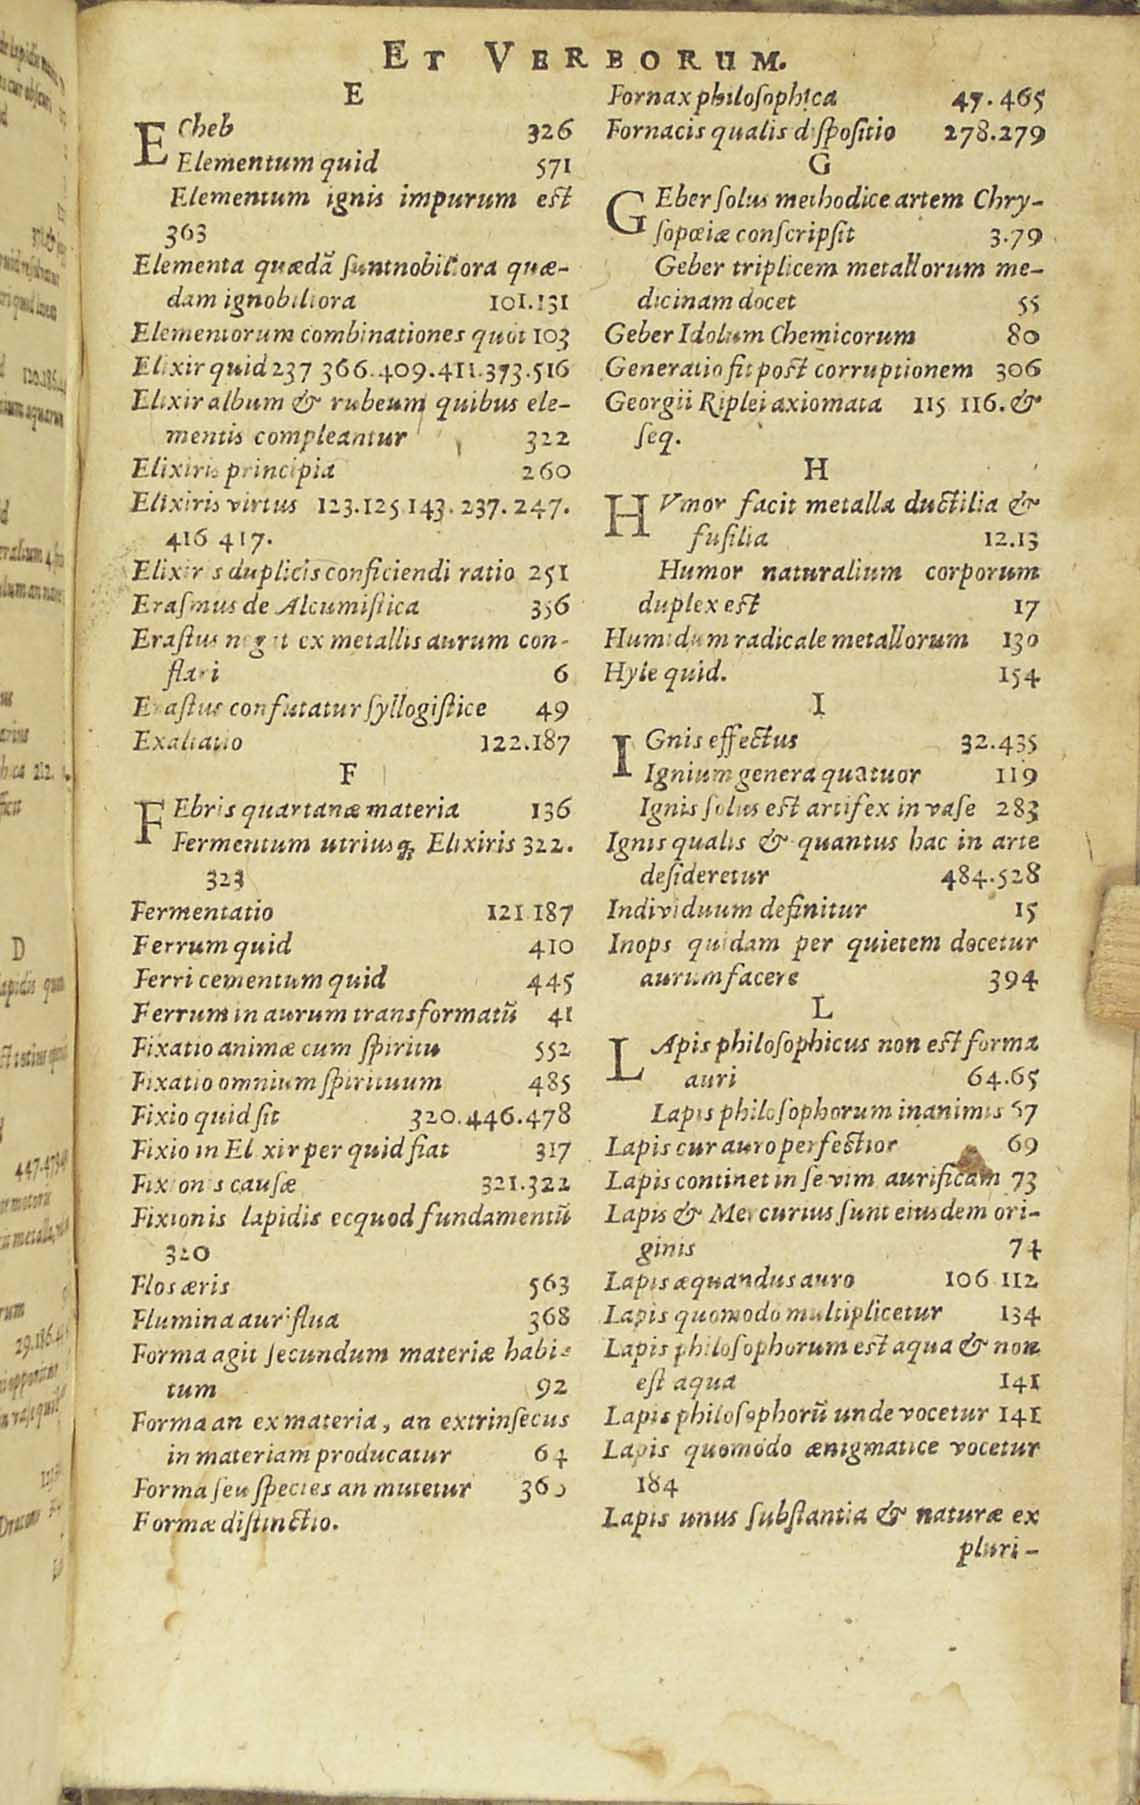 ET VERBORUM.
E
ECheb 326
Elementum quid 571
Elementum ignis impurum est
363
Elementa quædã suntnobiliora quæ-
dam ignobiliora 101.131
Elementorum combinationes quot 103
Elixir quid 237 366.409.411.373.516
Elixir album & rubeum quibus ele-
mentis compleantur 322
Elixiris principia 260
Elixiris virtus 123.125 143. 237. 247.
416 417.
Elixiris duplicis conficiendi ratio 251
Erasmus de Alcumistica 356
Erastus negat ex metallis aurum con-
flari 6
Erastus confutatur syllogistice 49
Exaltatio 122.187
F
FEbris quartanæ materia 136
Fermentum utriusq; Elixiris 322.
323
Fermentatio 121 187
Ferrum quid 410
Ferri cementum quid 445
Ferrum in aurum transformatũ 41
Fixatio animæ cum spiritu 552
Fixatio omnium spirituum 485
Fixio quid sit 320.446.478
Fixio in El xir per quid fiat 317
Fixionis causæ 321.322
Fixionis lapidis ecquod fundamentũ
320
Flos æris 563
Flumina auriflua 368
Forma agit secundum materiæ habi-
tum 92
Forma an ex materia, an extrinsecus
in materiam producatur 64
Forma seu species an mutetur
Formæ distinctio.
Fornax philosophica 47.465
Fornacis qualis dispositio 278.279
G
GEber solus methodice artem Chry-
sopœiæ conscripsit 3.79
Geber triplicem metallorum me-
dicinam docet 55
Geber Idolum Chemicorum 80
Generatio fit post corruptionem 306
Georgii Riplei axiomata 115 116. &
seq.
H
HVmor facit metalla ductilia &
fusilia 12.13
Humor naturalium corporum
duplex est 17
Humidum radicale metallorum 130
Hyle quid. 154
I
IGnis effectus 32.435
Ignium genera quatuor 119
Ignis solus est artifex in vase 283
Ignis qualis & quantus hac in arte
desideretur 484.528
Individuum definitur 15
Inops quidam per quietem docetur
aurum facere 394
L
LApis philosophicus non est forma
auri 64.65
Lapis philosophorum inanimis 67
Lapis cur auro perfectior 69
Lapis continet in se vim aurificam 73
Lapis & Mercurius sunt eiusdem ori-
ginis 74
Lapis æquandus auro 106 112
Lapis quomodo multiplicetur 134
Lapis philosophorum est aqua & non
est aqua 141
Lapis philosophorũ unde vocetur 141
Lapis quomodo ænigmatice vocetur
184
Lapis unus substantia & naturæ ex
pluri-